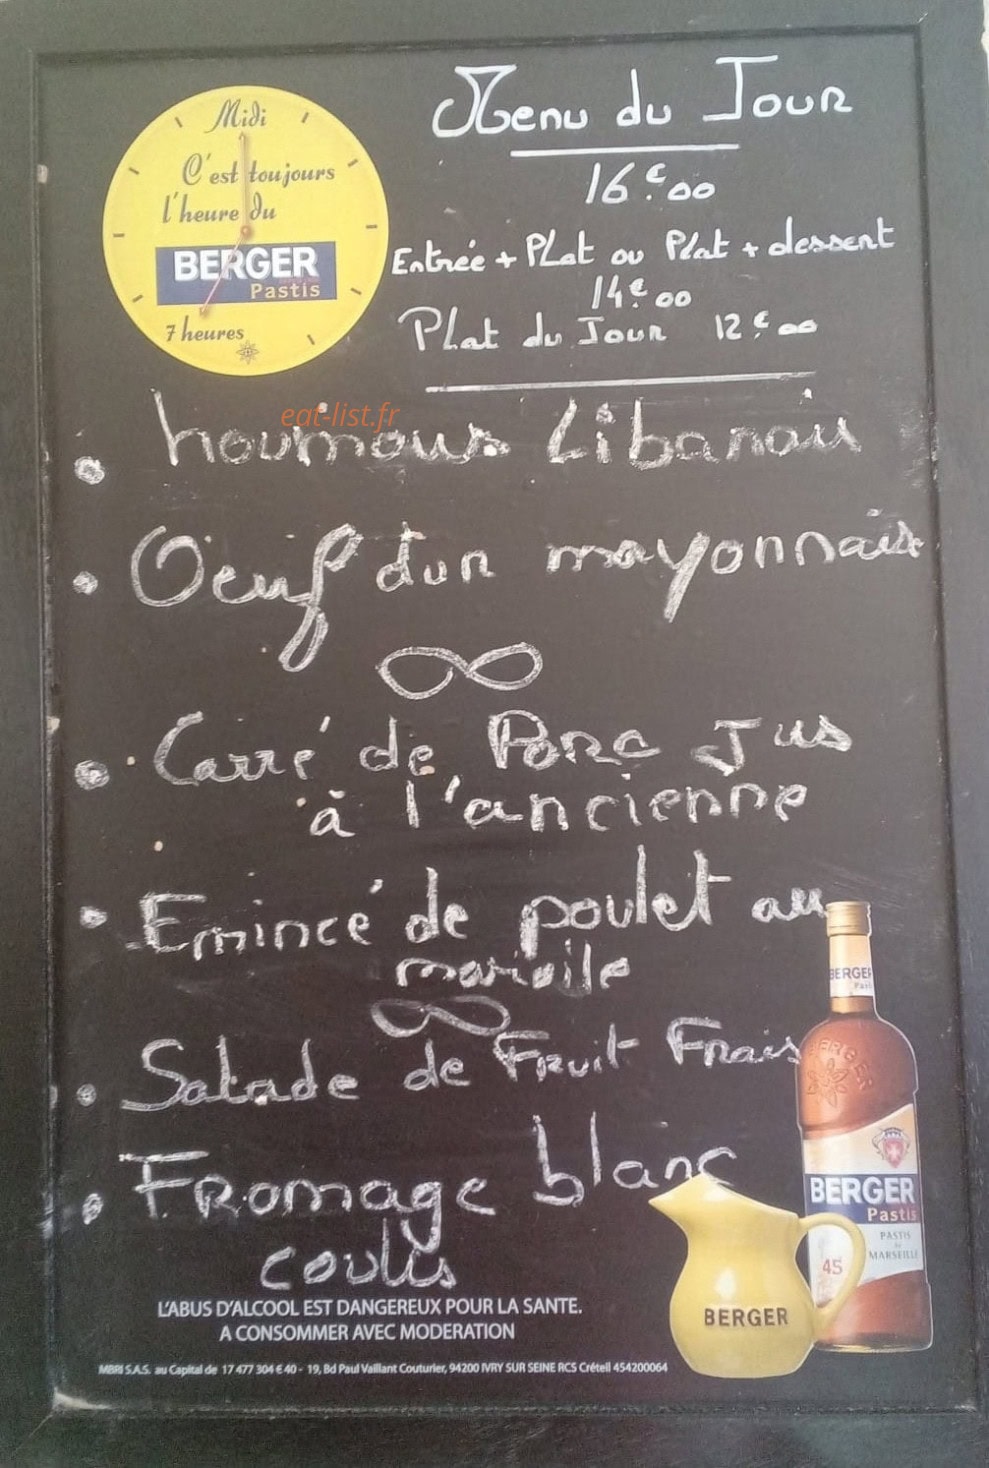 Menu du Jour
16€00
Entrée + Plat ou Plat + dessert
14€00
Plat du Jour 12€00
Midi
C'est toujours
l'heure du
BERGER
Pastis
7 heures
eat-list.fr
• houmous Libanais
• Oeuf dur mayonnais
• Carré de Porc Jus
à l'ancienne
• Emincé de poulet au
• Salade de Fruit Frais
• Fromage blanc
coulis
BERGER
BERGER
BERGER
Pastis
PASTIS
de
MARSEILLE
45
BERGER
L'ABUS D'ALCOOL EST DANGEREUX POUR LA SANTE.
A CONSOMMER AVEC MODERATION
MBRI S.A.S. au Capital de 17 477 304 € 40 - 19, Bd Paul Vaillant Couturier, 94200 IVRY SUR SEINE RCS Créteil 454200064